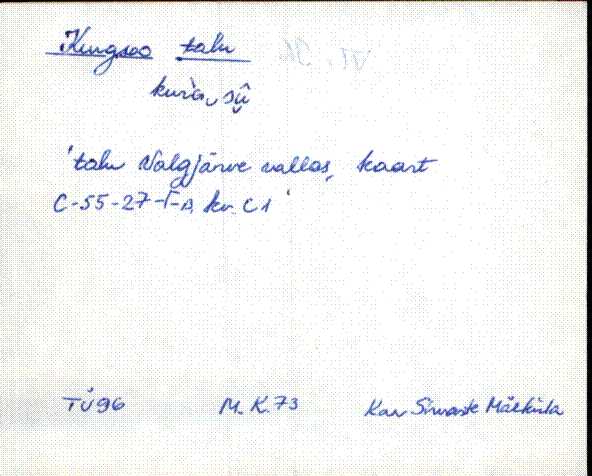 Kungsoo talu
'talu Valgjärve vallas, kaart
C-55-27-Г-в, kv. C1'
TÜ96 M. K. 73 Kan Sirvaste Mälküla